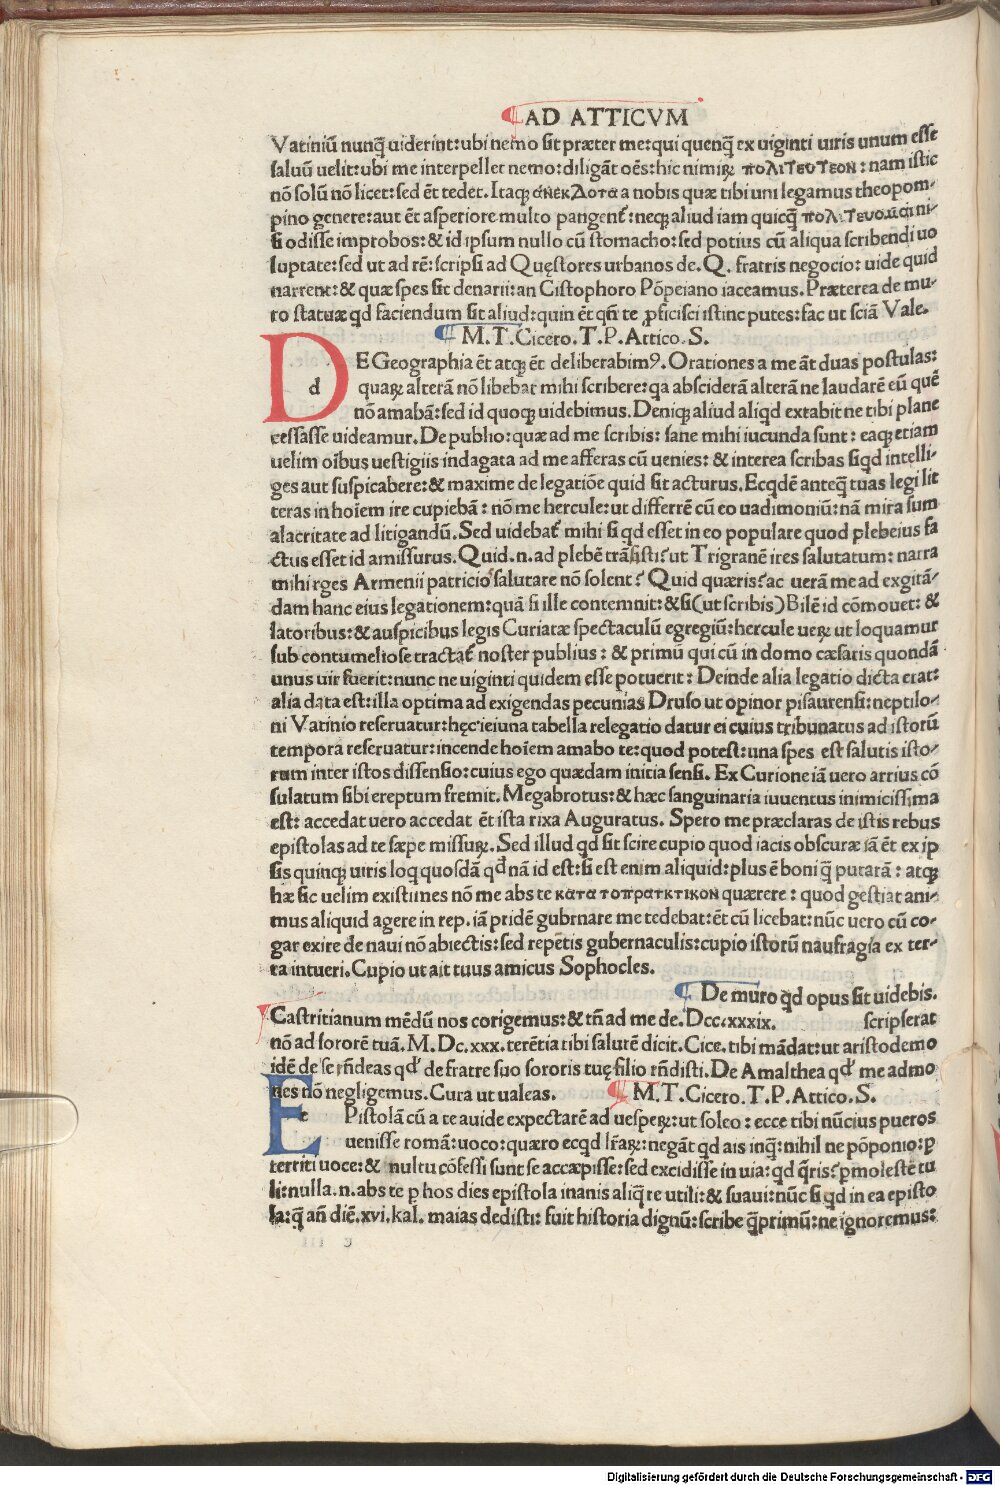 AD ATTICVM
Vatiniū nunq̄ uiderint: ubi nemo sit præter me: qui quenq̄ ex uiginti uiris unum esse
saluū uelit: ubi me interpellet nemo: diligāt oēs: hic nimiꝝ πολιτευτεον: nam istic
nō solū nō licet: sed ēt tedet. Itaqꝫ ανεκδοτα a nobis quæ tibi uni legamus theopom-
pino genere: aut ēt asperiore multo pangent᷑: neqꝫ aliud iam quicq̄ πολιτευομαι ni-
si odisse improbos: & id ipsum nullo cū stomacho: sed potius cū aliqua scribendi uo
luptate: sed ut ad rē: scripsi ad Quęstores urbanos de. Q. fratris negocio: uide quid
narrent: & quæ spes sit denarii: an Cistophoro Pōpeiano iaceamus. Præterea de mu-
ro statuæ qd faciendum sit aliud: quin ēt qn̄ te ꝓficisci istinc putes: fac ut sciā Vale.
M. T. Cicero. T. P. Attico. S.
D d E Geographia ēt atqꝫ ēt deliberabimꝰ. Orationes a me āt duas postulas:
quaꝝ alterā nō libebat mihi scribere: qa absciderā alterā ne laudarē eū quē
nō amabā: sed id quoqꝫ uidebimus. Deniqꝫ aliud aliqd extabit ne tibi plane
cessasse uideamur. De publio: quæ ad me scribis: sane mihi iucunda sunt: eaqꝫ etiam
uelim oībus uestigiis indagata ad me afferas cū uenies: & interea scribas siqd intelli-
ges aut suspicabere: & maxime de legatiōe quid sit acturus. Ecqdē anteq̄ tuas legi lit
teras in hoīem ire cupiebā: nō me hercule: ut differrē cū eo uadimoniū: nā mira sum
alacritate ad litigandū. Sed uidebat᷑ mihi si qd esset in eo populare quod plebeius fa
ctus esset id amissurus. Quid. n. ad plebē trāsisti? ut Trigranē ires salutatum: narra
mihi rges Armenii patricios salutare nō solent? Quid quæris? ac uerā me ad exgitā-
dam hanc eius legationem: quā si ille contemnit: & si (ut scribis) Bilē id cōmouet: &
latoribus: & auspicibus legis Curiatæ spectaculū egregiū: hercule ueꝝ ut loquamur
sub contumeliose tractat᷑ noster publius: & primū qui cū in domo cæsaris quondā
unus uir fuerit: nunc ne uiginti quidem esse potuerit: Deinde alia legatio dicta erat:
alia data est: illa optima ad exigendas pecunias Druso ut opinor pisaurensi: neptilo-
ni Vatinio reseruatur: hęc ieiuna tabella relegatio datur ei cuius tribunatus ad istorū
tempora reseruatur: incende hoīem amabo te: quod potest: una spes est salutis isto-
rum inter istos dissensio: cuius ego quædam initia sensi. Ex Curione iā uero arrius cō
sulatum sibi ereptum fremit. Megabrotus: & hæc sanguinaria iuuentus inimicissima
est: accedat uero accedat ēt ista rixa Auguratus. Spero me præclaras de istis rebus
epistolas ad te sæpe missuꝝ. Sed illud qd sit scire cupio quod iacis obscuræ iā ēt ex ip
sis quinqꝫ uiris loq quosdā qd nā id est: si est enim aliquid: plus ē boni q̄ putarā: atqꝫ
hæ sic uelim existimes nō me abs te κατα τοπρακτικον quærere: quod gestiat ani-
mus aliquid agere in rep. iā pridē gubrnare me tedebat: ēt cū licebat: nūc uero cū co-
gar exire de naui nō abiectis: sed repētis gubernaculis: cupio istorū naufragia ex ter-
ra intueri. Cupio ut ait tuus amicus Sophocles.
De muro qd opus sit uidebis.
Castritianum mēdū nos corigemus: & tn̄ ad me de. Dccxxxix. scripserat
nō ad sororē tuā. M. Dc. xxx. terētia tibi salutē dicit. Cice. tibi mādat: ut aristodemo
idē de se rn̄deas qd de fratre suo sororis tuę filio rn̄disti. De Amalthea qd me admo
nes nō negligemus. Cura ut ualeas. M. T. Cicero. T. P. Attico. S.
E e Pistolā cū a te auide expectarē ad uesperꝝ: ut soleo: ecce tibi nūcius pueros
uenisse romā: uoco: quæro ecqd lr̄aꝝ: negāt qd ais inq̄: nihil ne pōponio: ꝑ
territi uoce: & uultu cōfessi sunt se accæpisse: sed excidisse in uia: qd q̄ris? ꝑmoleste tu
li: nulla. n. abs te ꝑ hos dies epistola inanis aliq̄ re utili: & suaui: nūc si qd in ea episto
la: q̄ an̄ diē. xvi. kal. maias dedisti: fuit historia dignū: scribe q̄primū: ne ignoremus:
Digitalisierung gefördert durch die Deutsche Forschungsgemeinschaft - DFG